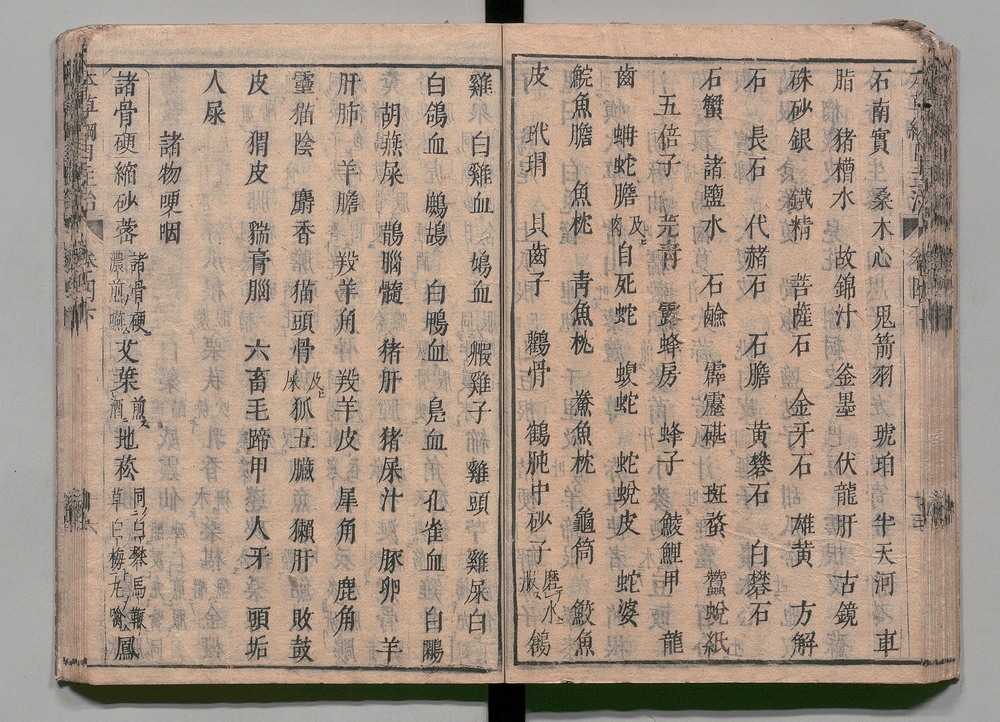 石南實　桑木心　鬼箭羽　琥珀　半天河　車
脂　猪槽水　故錦汁　釜墨　伏龍肝　古鏡
硃砂銀　鐵精　菩薩石　金牙石　雄黃　方解
石　長石　代赭石　石膽　黃礬石　白礬石
石蟹　諸鹽水　石鹼　霹靂碪　斑蝥　蠶蛻紙
五倍子　芫青　露蜂房　蜂子　鯪鯉甲　龍
齒　蚺蛇膽及肉　自死蛇　蝮蛇　蛇蛻皮　蛇婆
鯇魚膽　魚枕　青魚枕　鱉魚枕　龜筒　鮫魚
皮　玳瑁　貝齒子　鸛骨　鶴肫中砂子磨水服　鵁
雞　白雞血　鳩血　鷄子　雞頭　雞屎白
白鴿血　鷓鴣　白鴨血　鳧血　孔雀血　白鷳
胡燕屎　鵲腦髓　猪肝　猪屎汁　豚卵　羊
肝肺　羊膽　羖羊角　羖羊皮　犀角　鹿角
靈猫陰　麝香　猫頭骨及屎　狐五臟　獺肝　敗鼓
皮　猬皮　猯膏腦　六畜毛蹄甲　人牙　頭垢
人尿
諸物哽咽
諸骨硬　縮砂蔤諸骨硬濃煎嚥　艾葉煎酒　地菘同白礬馬鞭草白梅丸噙　鳳